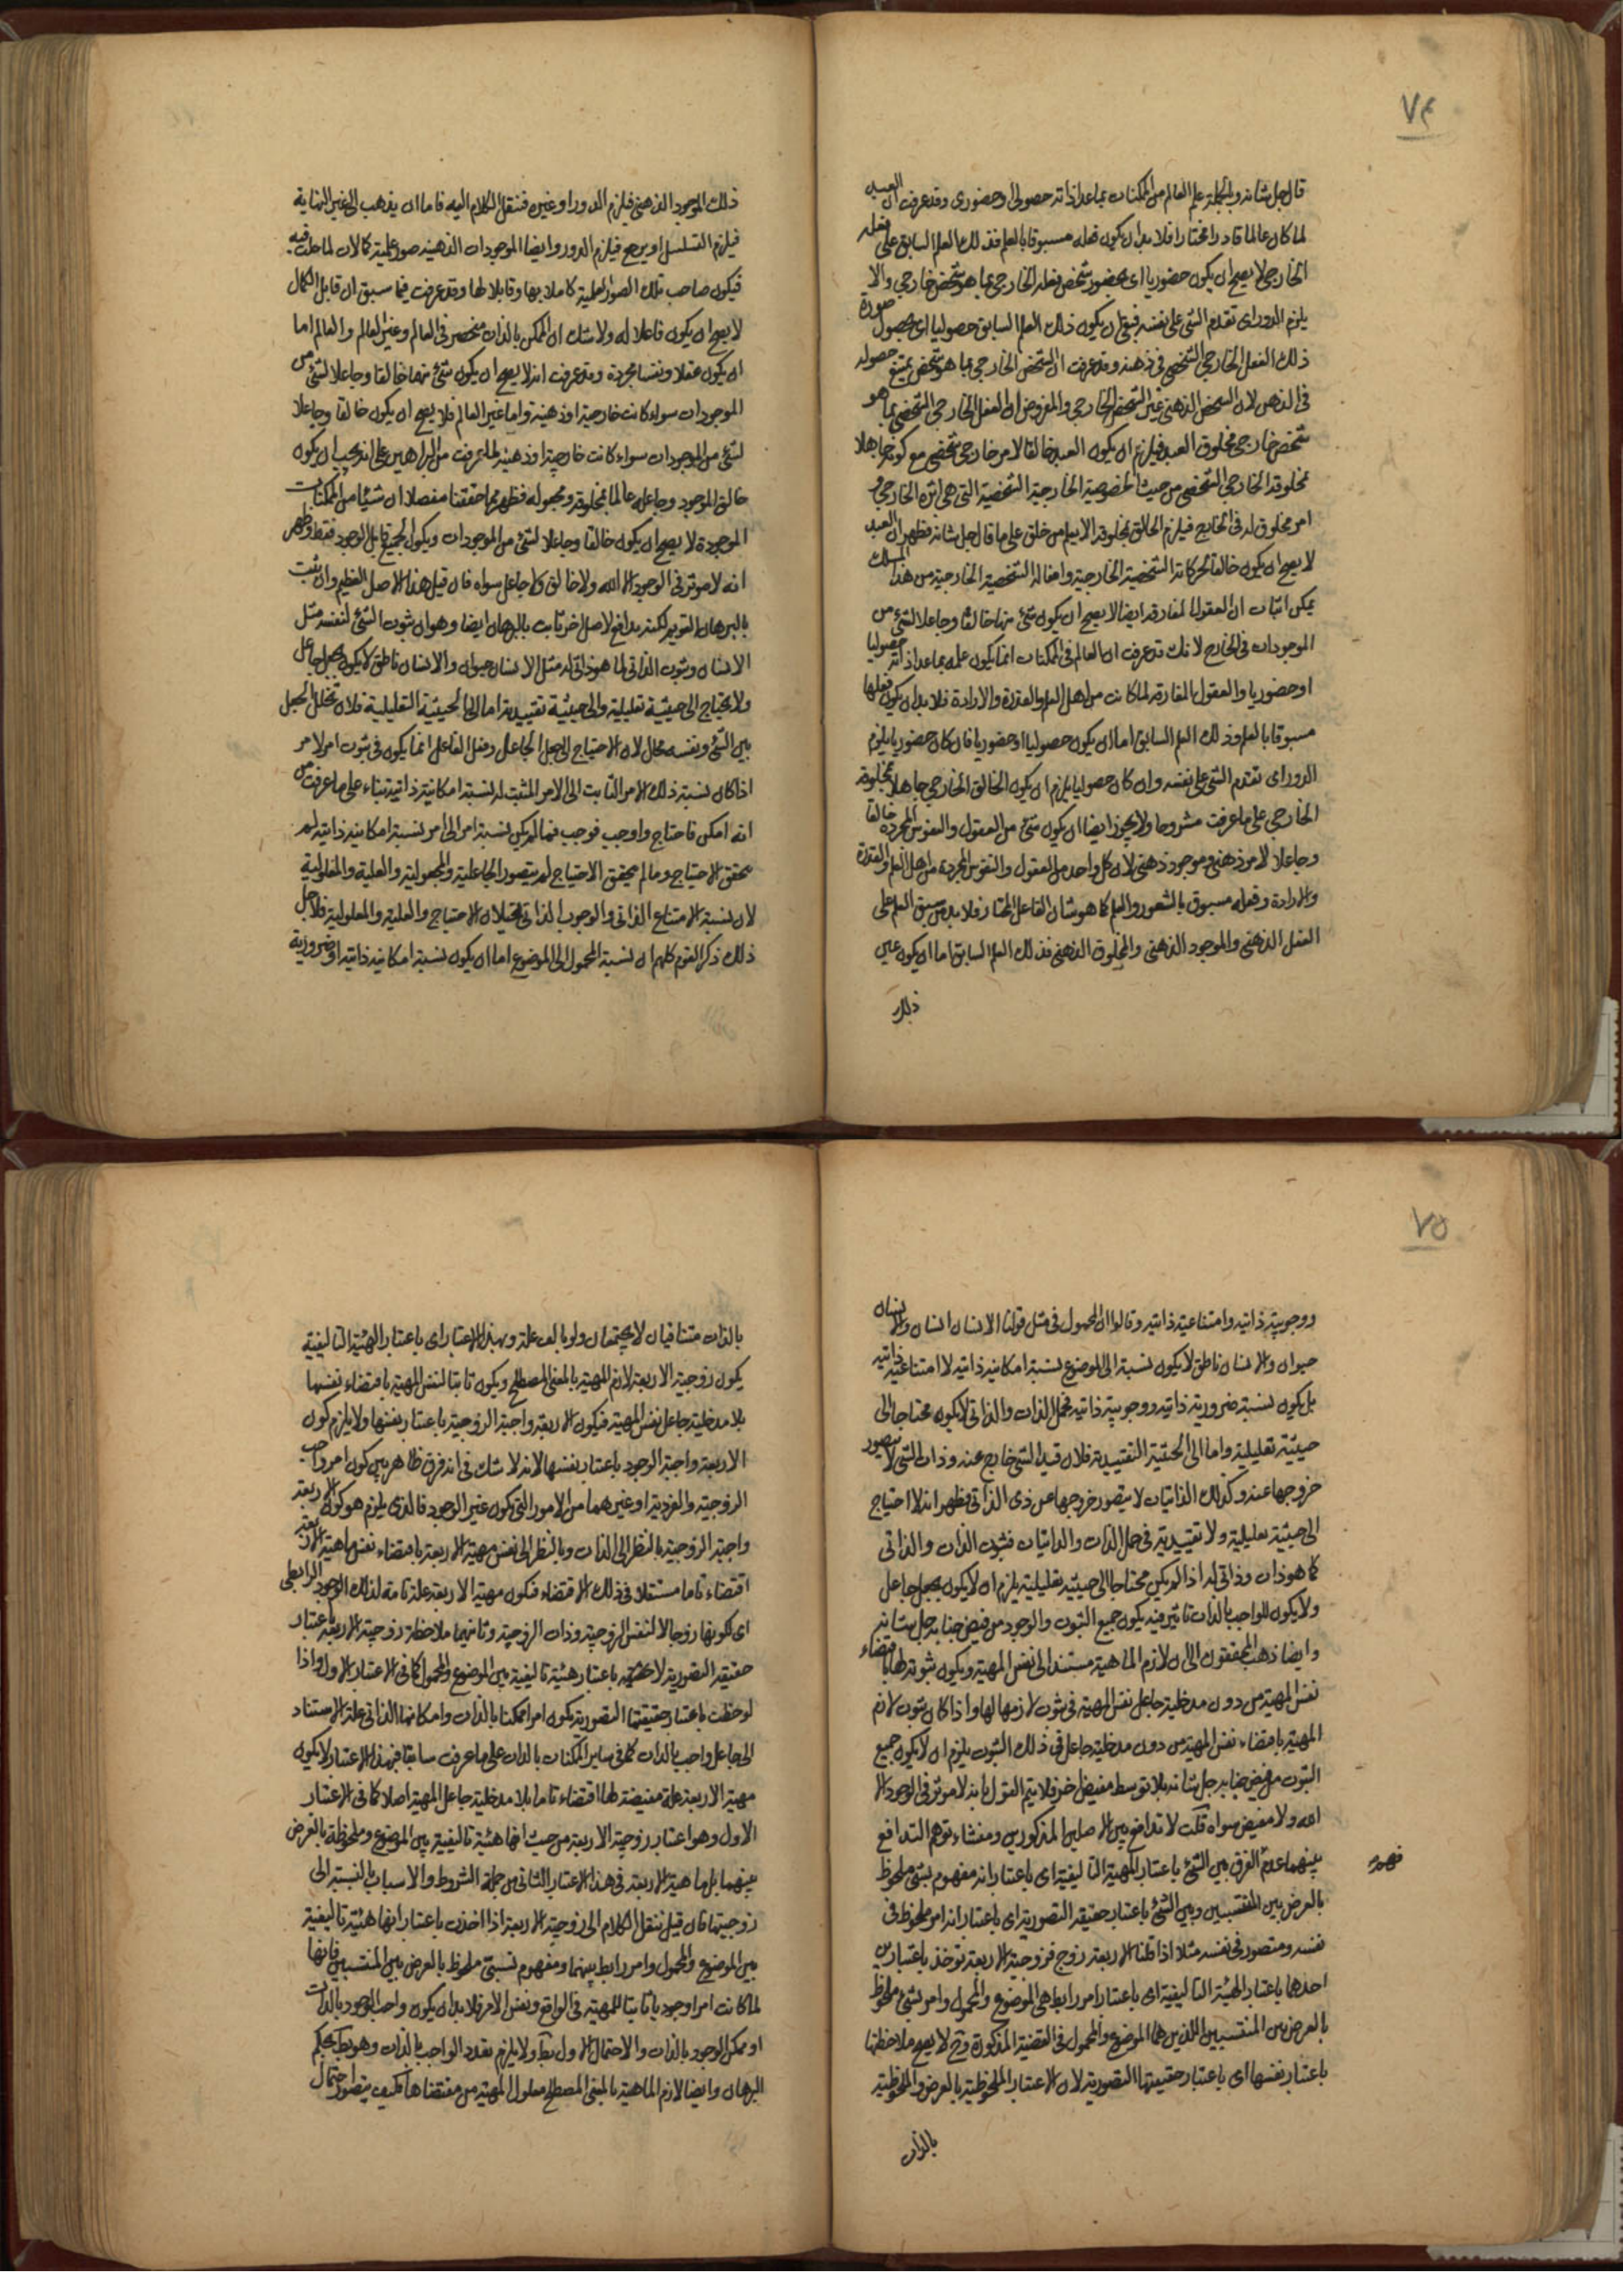 ٧٤
قال جل شانه وبالجملة علم العالم من الممكنات بماعدا ذاته حصولى وحضورى وقد عرفت ان العبد
لما كان عالما قادرا مختارا فلا بد ان يكون فعله مسبوقا بالعلم فذلك العلم السابق على فعله
الخارجى لا يصح ان يكون حضوريا اى بحضور شخص فعله الخارجى بما هو شخص خارجى والا
يلزم الدور اى تقدم الشئ على نفسه فبقى ان يكون ذلك العلم السابق حصوليا اى بحصول صورة
ذلك الفعل الخارجى الشخصى فى ذهنه وقد عرفت ان الشخص الخارجى بما هو شخص يمتنع حصوله
فى الذهن لان الشخص الذهنى غير الشخص الخارجى والمفروض ان الفعل الخارجى الشخصى بما هو
شخص خارجى مخلوق العبد فيلزم ان يكون العبد خالقا لامر خارجى شخصى مع كونه جاهلا
بمخلوقه الخارجى الشخصى من حيث الخصوصية الخارجية الشخصية التى هى اثره الخارجى و
امر مخلوق له فى الخارج فيلزم الخالق بمخلوقه الا يعلم من خلق على ما قال جل شانه فظهر ان العبد
لا يصح ان يكون خالقا لحركاته الشخصية الخارجية وافعاله الشخصية الخارجية من هذا المسلك
يمكن اثبات ان العقول المفارقة ايضا لا يصح ان يكون شئ منها خالقا وجاعلا لشئ من
الموجودات فى الخارج لانك قد عرفت ان العالم فى الممكنات انما يكون علمه بماعدا ذاته حصوليا
او حضوريا والعقول المفارقة لما كانت من اهل العلم والقدرة والارادة فلا بد ان يكون فعلها
مسبوقا بالعلم وذلك العلم السابق اما ان يكون حصوليا او حضوريا فان كان حضوريا يلزم
الدور اى تقدم الشئ على نفسه وان كان حصوليا يلزم ان يكون الخالق الخارجى جاهلا بمخلوقه
الخارجى على ما عرفت مشروحا ولا يجوز ايضا ان يكون شئ من العقول والنفوس المجردة خالقا
وجاعلا لامر ذهنى وموجود ذهنى لان كل واحد من العقول والنفوس المجردة من اهل العلم والقدرة
والارادة وفعله مسبوق بالشعور والعلم كما هو شان الفاعل المختار فلا بد من سبق العلم على
الفعل الذهنى والموجود الذهنى والمخلوق الذهنى فذلك العلم السابق اما ان يكون عين
ذلك
ذلك الموجود الذهنى فيلزم الدور او غيره فننقل الكلام اليه فاما ان يذهب الى غير النهاية
فيلزم التسلسل او يرجع فيلزم الدور وايضا الموجودات الذهنية صور علمية كمالات لما حلت فيه
فيكون صاحب تلك الصور العلمية كاملا بها وقابلا لها وقد عرفت فيما سبق ان قابل الكمال
لا يصح ان يكون فاعلا له ولا شك ان الممكن بالذات منحصر فى العالم وغير العالم والعالم اما
ان يكون عقلا ونفسا مجردة وقد عرفت انه لا يصح ان يكون شئ منهما خالقا وجاعلا لشئ من
الموجودات سواء كانت خارجية او ذهنية واما غير العالم فلا يصح ان يكون خالقا وجاعلا
لشئ من الموجودات سواء كانت خارجية او ذهنية لما عرفت من البراهين على انه يجب ان يكون
خالق الموجود وجاعله عالما بمخلوقه ومجعوله فظهر مما حققنا مفصلا ان شيئا من الممكنات
الموجودة لا يصح ان يكون خالقا وجاعلا لشئ من الموجودات ويكون الجميع قابل الوجود فقط وظهر
انه لا موثر فى الوجود الا الله ولا خالق ولا جاعل سواه فان قيل هذا الاصل العظيم وان ثبت
بالبرهان القويم لكنه يدافع لاصل اخر ثابت بالبرهان ايضا وهو ان ثبوت الشئ لنفسه مثل
الانسان وثبوت الذاتى لما هو ذاتى له مثل الانسان حيوان والانسان ناطق لا يكون بجعل جاعل
ولا يحتاج الى حيثية تعليلية والى حيثية تقييدية اما الى الحيثية التعليلية فلان تخلل الجعل
بين الشئ ونفسه محال لان الاحتياج الى جعل الجاعل وفعل الفاعل انما يكون فى ثبوت امر لامر
اذا كان نسبة ذلك الامر الثابت الى الامر المثبت له نسبة امكانية ذاتية بناء على ما عرفت من
انه امكن فاحتاج واوجب فوجب فما لم يكن نسبة امر الى امر نسبة امكانية ذاتية لم
يتحقق الاحتياج وما لم يتحقق الاحتياج لم يتصور الجاعلية والمجعولية والعلية والمعلولية
لان نسبة الامتناع الذاتى والوجوب الذاتى يحيلان الاحتياج والعلية والمعلولية فلاجل
ذلك ذكر القوم كلهم ان نسبة المحمول الى الموضوع اما ان يكون نسبة امكانية ذاتية او ضرورية
٧٥
ووجوبية ذاتية وامتناعية ذاتية وقالوا ان المحمول فى مثل قولنا الانسان انسان والانسان
حيوان والانسان ناطق لا يكون نسبة الى الموضوع نسبة امكانية ذاتية لا امتناعية ذاتية
بل يكون نسبة ضرورية ذاتية ووجوبية ذاتية فحمل الذات والذاتى لا يكون محتاجا الى
حيثية تعليلية واما الى الحيثية التقييدية فلان قيد الشئ خارج عنه وذات الشئ لا يتصور
خروجها عنه وكذلك الذاتيات لا يتصور خروجها عن ذى الذاتى فظهر انه لا احتياج
الى حيثية تعليلية ولا تقييدية فى حمل الذات والذاتيات فثبوت الذات والذاتى
كما هو ذات وذاتى له اذا لم يكن محتاجا الى حيثية تعليلية يلزم ان لا يكون بجعل جاعل
ولا يكون للواجب بالذات تاثير فيه يكون جميع الثبوت والوجود من فيض جنابه جل شانه
وايضا ذهب المحققون الى ان لازم الماهية مستند الى نفس المهية ويكون ثبوته لها باقتضاء
نفس المهية من دون مدخلية جاعل نفس المهية فى ثبوت لازمها لها واذا كان ثبوت لازم
المهية باقتضاء نفس المهية من دون مدخلية جاعل فى ذلك الثبوت يلزم ان لا يكون جميع
الثبوت من فيض جنابه جل شانه بلا توسط مفيض اخر فلا يتم القول بانه لا موثر فى الوجود الا
الله ولا مفيض سواه قلت لا تدافع بين الاصلين المذكورين ومنشاء توهم التدافع
بينهما عدم الفرق بين الشئ باعتبار الهيئة التاليفية اى باعتبار انه مفهوم نسبى ملحوظ
بالعرض بين المنتسبين وبين الشئ باعتبار حقيقته التصورية اى باعتبار انه امر ملحوظ فى
نفسه ومتصور فى نفسه مثلا اذا قلنا الاربعة زوج فزوجية الاربعة توخذ باعتبارين
احدهما باعتبار الهيئة التاليفية اى باعتبار امر رابط بين الموضوع والمحمول وامر نسبى ملحوظ
بالعرض بين المنتسبين اللذين هما الموضوع والمحمول فى القضية المذكورة وح لا يصح ملاحظتها
باعتبار نفسها اى باعتبار حقيقتها التصورية لان الاعتبار الملحوظية بالعرض والملحوظية
بالذات
بالذات متنافيان لا يجتمعان ولو بالف علة وبهذا الاعتبار اى باعتبار الهيئة التاليفية
يكون زوجية الاربعة لازم المهية بالمعنى المصطلح ويكون ثابتا لنفس المهية باقتضاء نفسها
بلا مدخلية جاعل نفس المهية فيكون الاربعة واجبة الزوجية باعتبار نفسها ولا يلزم كون
الاربعة واجبة الوجود باعتبار نفسها لانه لا شك فى انه فرق ظاهر بين كون امر واجب
الزوجية والفردية او غيرهما من الامور التى يكون غير الوجود فالذى يلزم هو كون الاربعة
واجبة الزوجية بالنظر الى الذات وبالنظر الى نفس مهية الاربعة باقتضاء نفس ماهية الاربعة
اقتضاء تاما مستقلا فى ذلك الاقتضاء فتكون مهية الاربعة علة تامة لذلك الوجود الرابطى
اى لكونها زوجا لا لنفس الزوجية وذات الزوجية وثانيهما ملاحظة زوجية الاربعة باعتبار
حقيقته التصورية لا باعتبار هيئة تاليفية بين الموضوع والمحمول كما فى الاعتبار الاول واذا
لوحظت باعتبار حقيقتها التصورية يكون امرا ممكنا بالذات وامكانها الذاتى علة الاستناد
الى جاعل واجب بالذات كما فى ساير الممكنات بالذات على ما عرفت سابقا فبهذا الاعتبار لا يكون
مهية الاربعة علة مفيضة لها اقتضاء تاما بلا مدخلية جاعل المهية اصلا كما فى الاعتبار
الاول وهو اعتبار زوجية الاربعة من حيث انها هيئة تاليفية بين الموضوع وملحوظة بالعرض
بينهما بل ماهية الاربعة فى هذا الاعتبار الثانى من جملة الشروط والاسباب بالنسبة الى
زوجيتها فان قيل ننقل الكلام الى زوجية الاربعة اذا اخذت باعتبار انها هيئة تاليفية
بين الموضوع والمحمول وامر رابط بينهما ومفهوم نسبتى ملحوظ بالعرض بين المنتسبين فانها
لما كانت امرا وجوديا ثابتا للمهية فى الواقع ونفس الامر فلا بد ان يكون واجب الوجود بالذات
او ممكن الوجود بالذات والاحتمال الاول بط ولا يلزم تعدد الواجب بالذات وهو بط بحكم
البرهان وايضا لازم الماهية بالمعنى المصطلح معلول المهية من مقتضاها فكيف يتصور احتمال